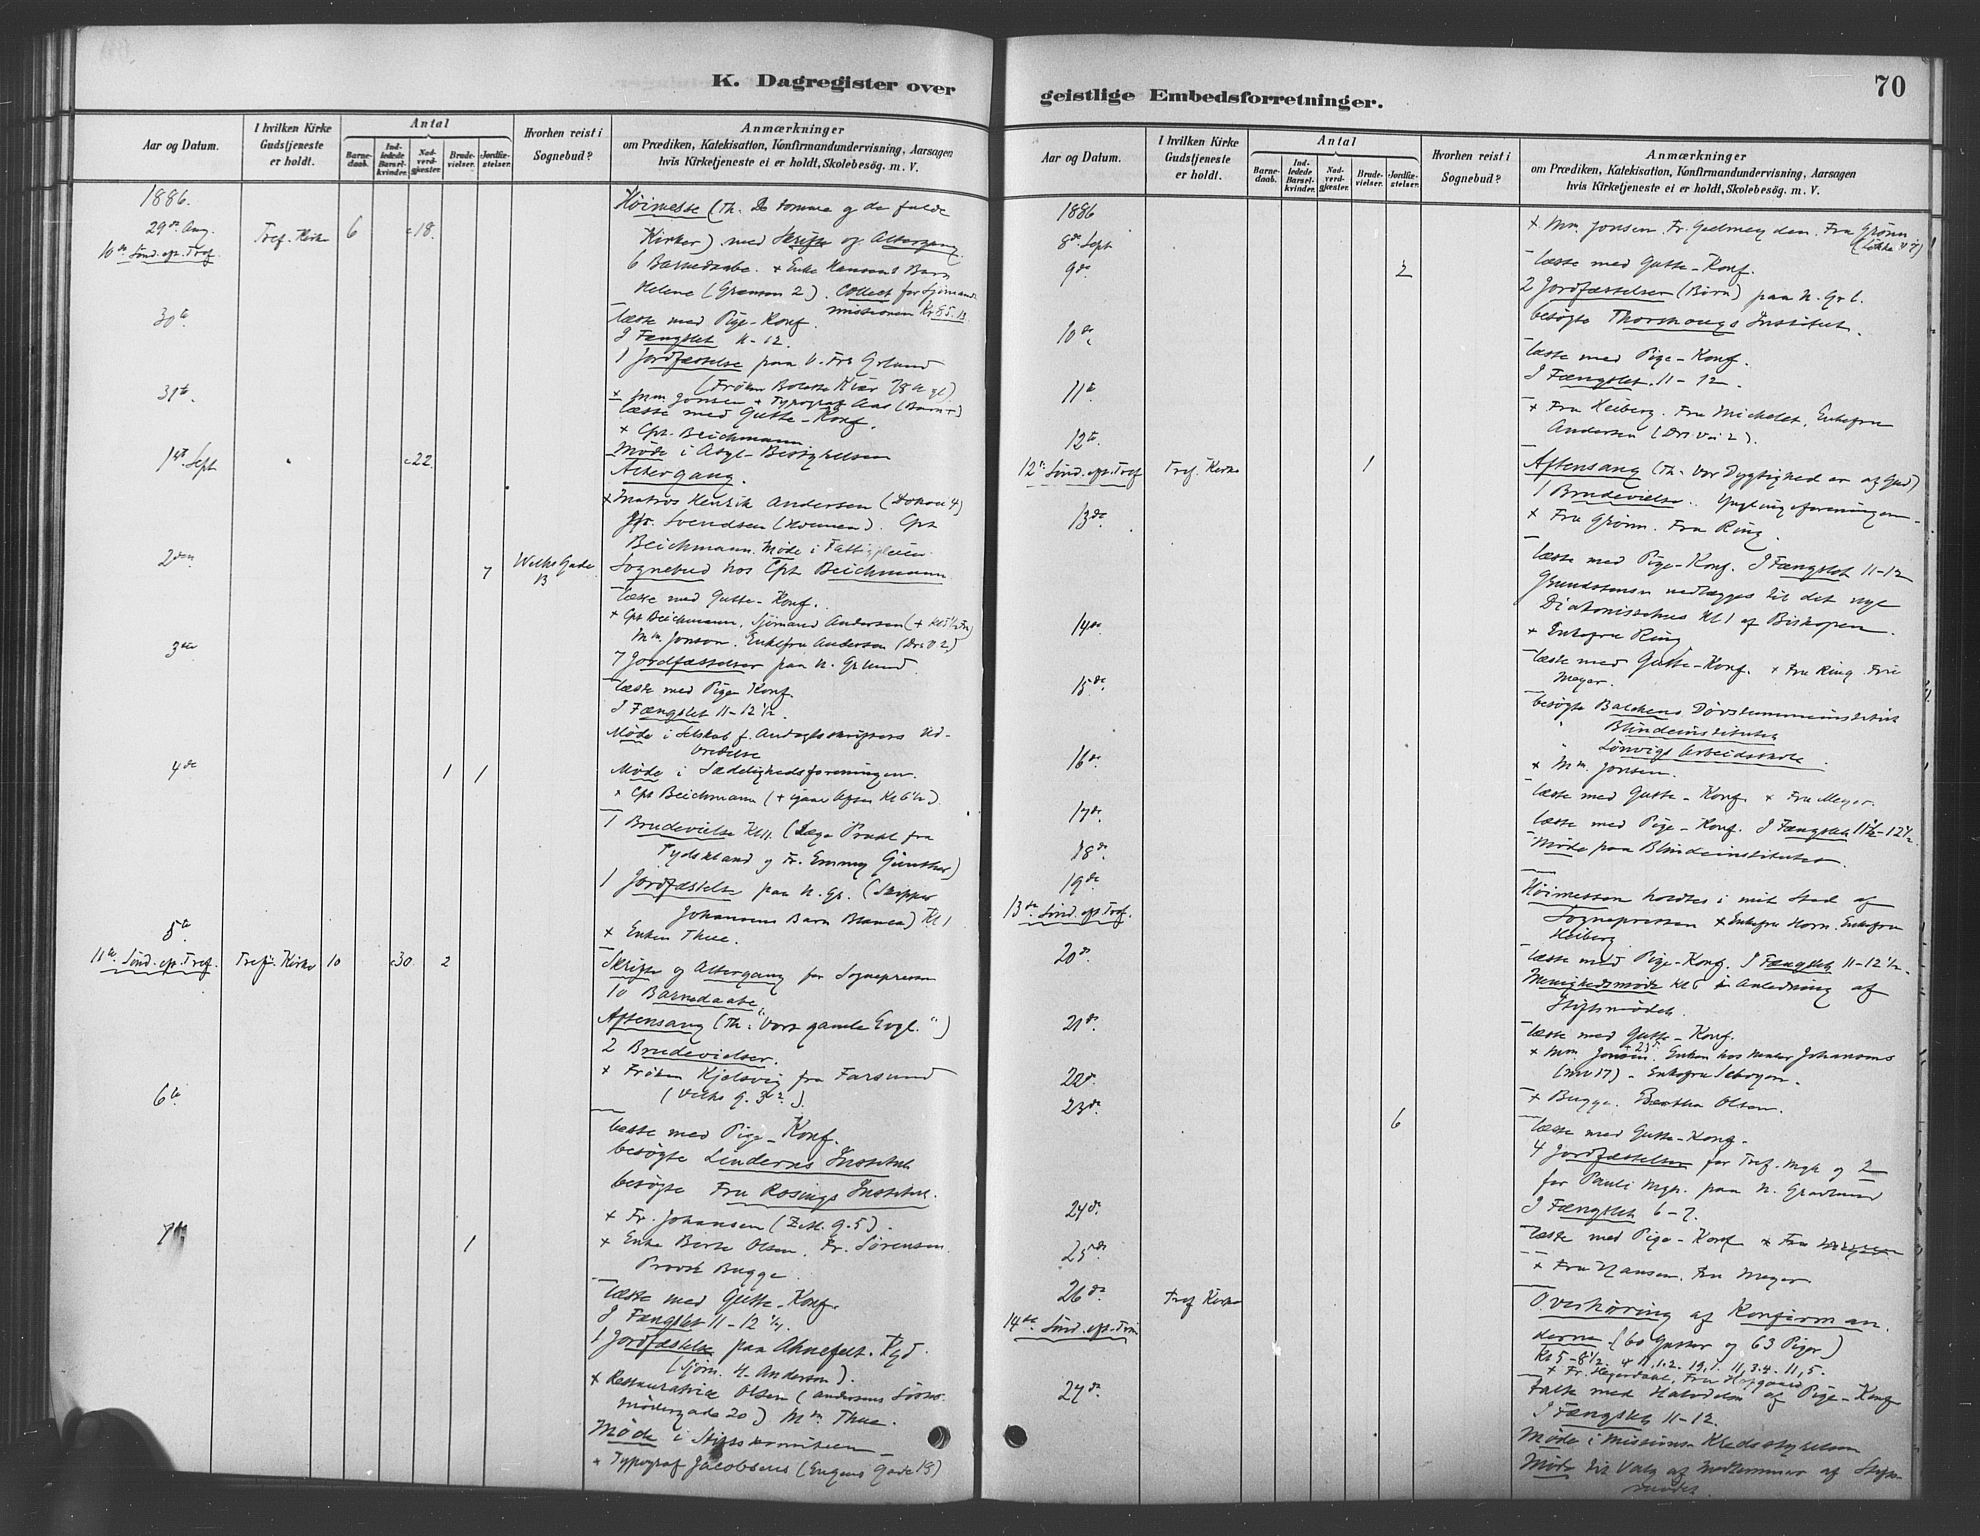 K. Dagregister over
Aar og Datum.
I hvilken Kirke Gudstjeneste er holdt.
Antal
Barnedaab.
Indledede Barselkvinder.
Nadverdgjæster.
Brudevielser.
Jordfæstelser.
Hvorhen reist i Sognebud?
Anmærkninger
om Prædiken, Katekisation, Konfirmandundervisning, Aarsagen
hvis Kirketjeneste ei er holdt, Skolebesøg. m. V.
1886.
29de Aug.
10de Sønd. ep. Tref. Tref. Kirke 6 18.
Høimesse (Th. De tomme og de fulde
Kirker) med Skrifte og Altergang
6 Barnedaabe. + Enke Hansens Barn
Helene (Grænsen 2). Collect for Sjømands
missionen Kr 85.13
30te
læste med Pige-Konf.
I Fængslet 11-12.
1 Jordfæstelse paa V. Frs Grlund
(Frøken Bolette Kiær
31te
+ Mm Jonsen + Typograf Aas (Barn +)
læste med Gutte-Konf.
+ Cpt. Beichmann
Møde i Asyl-Bestyrelsen
1st Sept 22
Altergang.
+ Matros Henrik Andersen
Svendsen. Cpt
Beichmann. Møde i Fattigpleien
2den 7 Welhs Gade 13
Sognebud hos Cpt Beichmann
læste med Gutte-Konf.
+ Cpt Beichmann, Sjømand Andersen
Mm Jonson. Enkefru Andersen
7 Jordfæstelser paa N. Grlund.
3die
læste med Pige Konf.
I Fængslet 11-12½.
Møde i Selskab f. Andagtsskrifters Ud-
bredelse
Møde i Sædelighedsforeningen.
+ Cpt Beichmann (+ igaar Aften Kl 6½).
4de 1 1
1 Brudevielse Kl 11. (Læge Pradt fra
Tydskland og Fr. Emmy Günther)
1 Jordfæstelse paa N. Gr. (Skipper
Johansens Barn Blanca) Kl 1
+ Enken Thue.
5te
11te Sønd. ep. Tref. Tref. Kirke 10 30. 2
Skrifte og Altergang for Sognepresten
10 Barnedaabe
Aftensang (Th. "Vort gamle Evgl.")
2 Brudevielser.
+ Frøken Kjelsvig fra Farsund
6te
læste med Pige-Konf.
besøgte Linderns Institut
besøgte Fru Rosings Institut.
+ Fr. Johansen
+ Enke Berte Olsen. Fr. Sørensen.
Provst Bugge.
7de 1
læste med Gutte-Konf.
I Fængslet 11-12½.
1 Jordfæstelse paa Ahnefelt.
(Sjøm. H. Anderson).
+ Restauratrice Olsen
mødergade 20) Mm Thue.
Møde i Stiftskomiteen
+ Typograf Jacobsens (Eugens Gade 13)
geistlige Embedsforretninger.
70
Aar og Datum.
I hvilken Kirke Gudstjeneste er holdt.
Antal
Barnedaab.
Indledede Barselkvinder.
Nadverdgjæster.
Brudevielser.
Jordfæstelser.
Hvorhen reist i Sognebud?
Anmærkninger
om Prædiken, Katekisation, Konfirmandundervisning, Aarsagen
hvis Kirketjeneste ei er holdt, Skolebesøg. m. V.
1886
8de Sept
+ Mm Jonsen. Fr. Guelmeyden. Fru Grønn
9de 2
læste med Gutte-Konf.
2 Jordfæstelser (Børn) paa N. Grl.
besøgte Thorshaugs Institut.
10de
læste med Pige-Konf.
I Fængslet 11-12.
11te
+ Fru Heiberg. Fru Michelet. Enkefru
Andersen
12te
12te Sønd. ep. Tref Tref. Kirke 1
Aftensang (Th. Vor Dygtighed er af Gud)
1 Brudevielse. Ynglingeforeningen
+ Fru Grønn. Fru Ring.
13de
læste med Pige-Konf. I Fængslet 11-12
Grundstenen nedlægges til det nye
Diakonissehus Kl 1 af Biskopen.
+ Enkefru Ring
14de
læste med Gutte-Konf. + Fru Ring. Fru
Meyer.
15de
besøgte Balchens Døvstummeinstitut
Blindeinstitutet
Sønvigs Arbeidsskole.
+ Mm Jonsen.
16de
læste med Gutte-Konf. + Fru Meyer.
17de
læste med Pige-Konf. I Fængslet 11½-12½.
18de
Møde paa Blindeinstitutet.
19de
13de Sønd. ep. Tref.
Høimessen holdtes i mit Sted af
Sognepresten + Enkefru Horn. Enkefru
Heiberg
20de
læste med Pige-Konf. I Fængslet 11-12½.
Menighedsmøde Kl 6 i Anledning af
Stiftsmødet.
21de
læste med Gutte-Konf.
+ Mm Jonsen. Enken hos Maler Johansens
22de
+ Bugge. Bertha Olsen.
23de 6
læste med Gutte-Konf.
4 Jordfæstelser for Tref. Mgh og 2
for Pauli Mgh. paa N. Gravlund
I Fængslet 6-7.
24de
læste med Pige-Konf + Fru
25de
+ Fru Hansen. Fru Meyer
26de
14de Sønd. ep. Trin Tref Kirke
Overhøring af Konfirman-
derne (60 Gutter og 63 Piger)
Kl 5-8½.
27de
Talte med Halvdelen af Pige-Konf
I Fængslet 11-12.
Møde i Missions Kredsstyrelsen
Møde til Valg af Medlemmer af Stifts-
mødet.